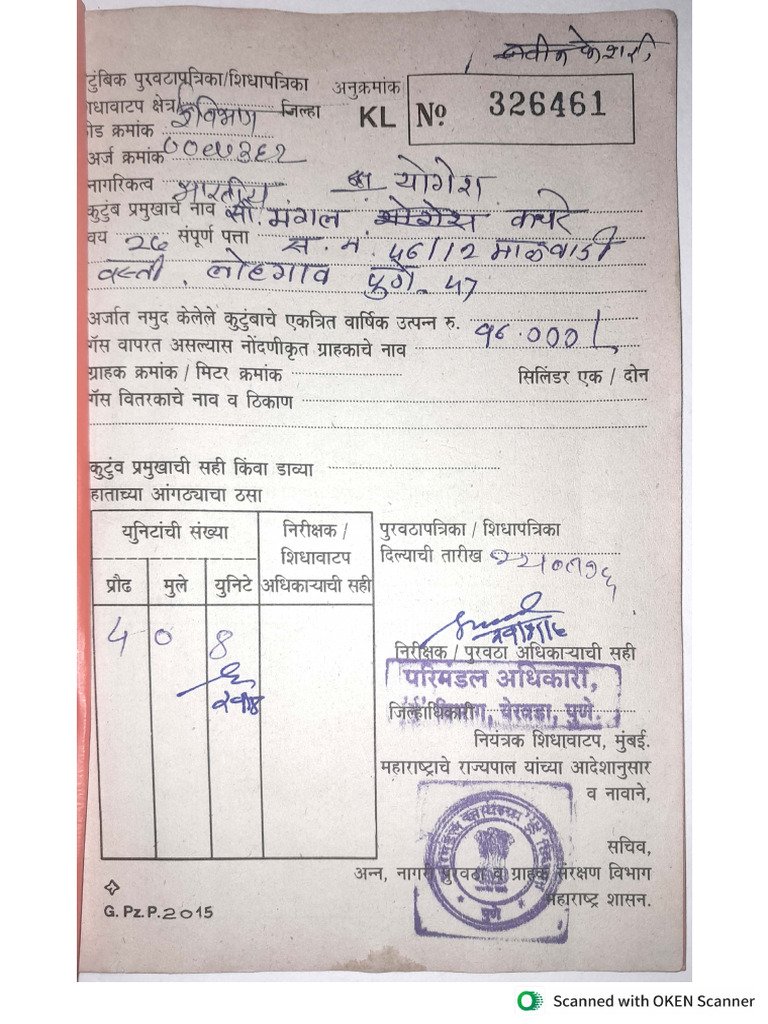 नवीन केशरी
टुंबिक पुरवठापत्रिका/शिधापत्रिका अनुक्रमांक
KL Nº 326461
धावाटप क्षेत्र विभाग जिल्हा
ड क्रमांक
अर्ज क्रमांक
नागरिकत्व भारतीय योगेश
कुटुंब प्रमुखाचे नाव सौ. मंगल योगेश कचरे
वय 26 संपूर्ण पत्ता स. नं. 46/12 माळवाडी
वस्ती, लोहगाव पुणे. 47
अर्जात नमुद केलेले कुटुंबाचे एकत्रित वार्षिक उत्पन्न रु.
गॅस वापरत असल्यास नोंदणीकृत ग्राहकाचे नाव
ग्राहक क्रमांक / मिटर क्रमांक सिलिंडर एक / दोन
गॅस वितरकाचे नाव व ठिकाण
कुटुंव प्रमुखाची सही किंवा डाव्या
हाताच्या आंगठ्याचा ठसा
युनिटांची संख्या
निरीक्षक / शिधावाटप अधिकाऱ्याची सही
प्रौढ मुले युनिटे
4 0 8
पुरवठापत्रिका / शिधापत्रिका
दिल्याची तारीख
निरीक्षक / पुरवठा अधिकाऱ्याची सही
परिमंडल अधिकारी,
जिल्हाधिकारी विभाग, येरवडा, पुणे.
नियंत्रक शिधावाटप, मुंबई.
महाराष्ट्राचे राज्यपाल यांच्या आदेशानुसार
व नावाने,
सचिव,
अन्न, नागरी पुरवठा व ग्राहक संरक्षण विभाग
महाराष्ट्र शासन.
पुणे
G. Pz. P. 2015
Scanned with OKEN Scanner